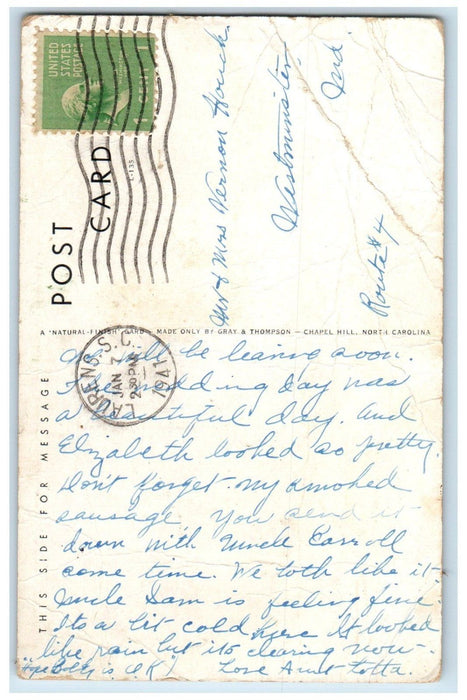 UNITED STATES POSTAGE
1 CENT 1
POST CARD
L-133
Mr & Mrs Vernon Houck
Westminster
Md
Route #4
A "NATURAL-FINISH" CARD - MADE ONLY BY GRAY & THOMPSON - CHAPEL HILL, NORTH CAROLINA
THIS SIDE FOR MESSAGE
LAURENS, S.C.
JAN 7
2:30 PM
1941
We will be leaving soon.
The wedding day was
a beautiful day. and
Elizabeth looked so pretty.
Don't forget my smoked
sausage. You send it
down with Uncle Carroll
some time. We both like it -
Uncle Sam is feeling fine
Its a bit cold here It looked
like rain but its clearing now -
is O.K.) Love Aunt Lotta.